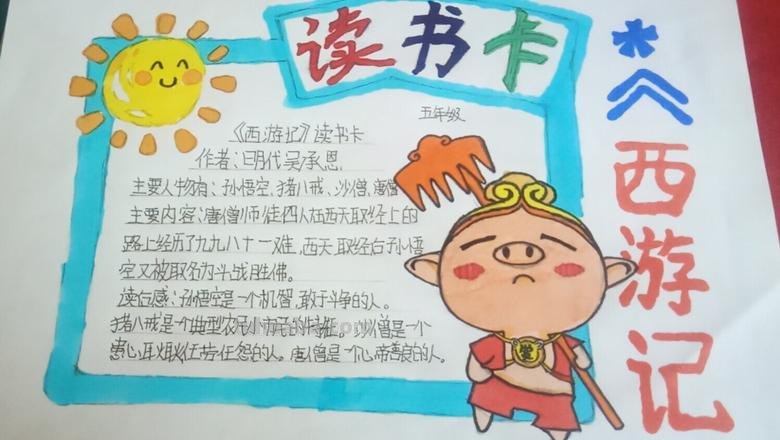 读书卡
五年级
《西游记》读书卡
作者:明代吴承恩
主要人物有:孙悟空,猪八戒,沙僧,唐僧
主要内容:唐僧师徒四人在西天取经上的
路上经历了九九八十一难,西天取经后孙悟
空又被取名为斗战胜佛。
读后感:孙悟空是一个机智,敢于斗争的人。
猪八戒是一个典型农民小市民的特征。沙僧是一个
忠心耿耿任劳任怨的人。唐僧是一个心帝善良的人。
*《西游记